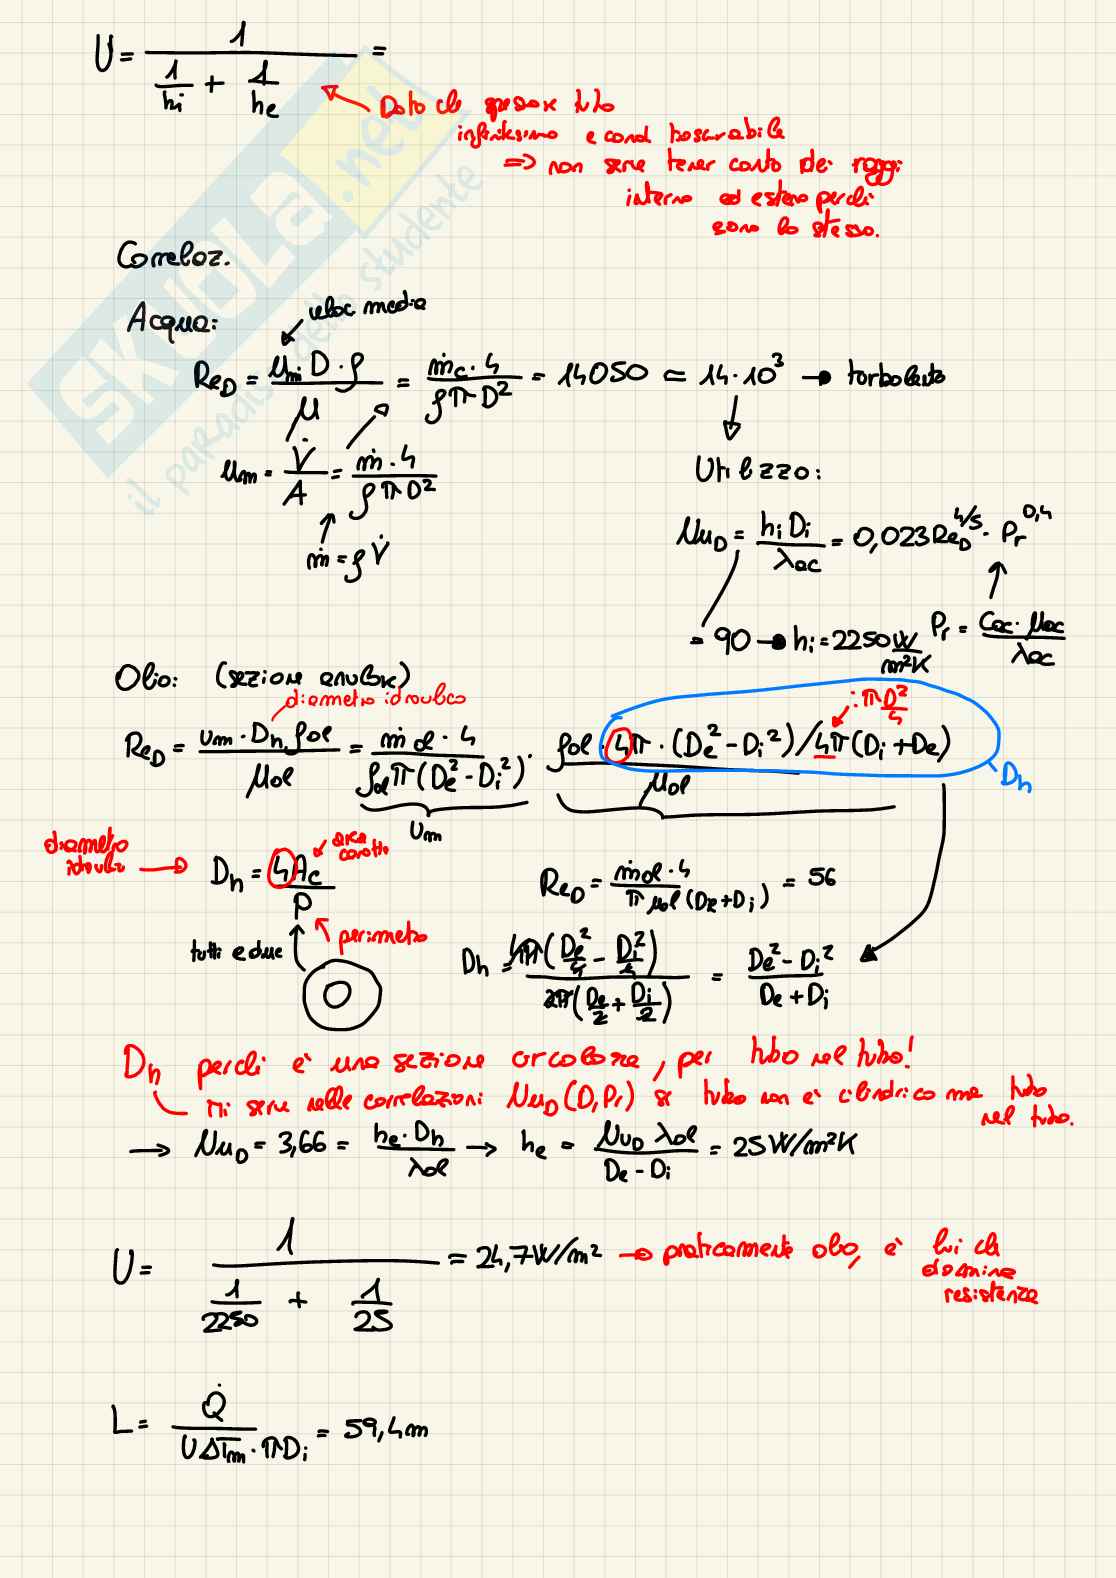 U = 1 / (1/hi + 1/he) =
Dato che spessore tubo
infinitesimo e cond trascurabile
=> non serve tener conto dei raggi
interno ed esterno perchè
sono lo stesso.
SKUOLA.net
il paradiso dello studente
Correlaz.
Acqua:
veloc media
ReD = (umi D · ρ) / μ = (ṁc · 4) / (ρ π D²) = 14050 ≃ 14·10³ → turbolento
um = V̇ / A = (ṁ · 4) / (ρ π D²)
ṁ = ρ V̇
Utilizzo:
NuD = (hi Di) / λac = 0,023 ReD^4/5 · Pr^0,4
= 90 → hi = 2250 W/m²K
Pr = (Cac · μac) / λac
Olio: (sezione anulare)
diametro idraulico
: π D²/4
ReD = (um · Dh ρol) / μol = (ṁol · 4) / (ρol π (De² - Di²)) · (ρol · 4π · (De² - Di²) / 4π (Di + De)) / μol
Dh
um
diametro idraulico → Dh = 4Ac / P
area condotto
perimetro
tutti e due
ReD = (ṁol · 4) / (π μol (De + Di)) = 56
Dh = 4π (De²/4 - Di²/4) / 2π (De/2 + Di/2) = (De² - Di²) / (De + Di)
Dh perchè è una sezione circolare, per tubo nel tubo!
mi serve nelle correlazioni NuD (D, Pr) se tubo non è cilindrico ma tubo
nel tubo.
→ NuD = 3,66 = (he · Dh) / λol → he = (NuD λol) / (De - Di) = 25 W/m²K
U = 1 / (1/2250 + 1/25) = 24,7 W/m² → praticamente olio, è lui che
domina
resistenza
L = Q̇ / (U ΔTm · π Di) = 59,4 m